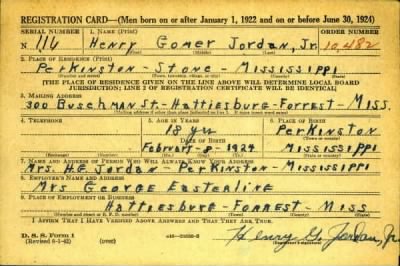 REGISTRATION CARD—(Men born on or after January 1, 1922 and on or before June 30, 1924)
SERIAL NUMBER 1. NAME (Print) ORDER NUMBER
N 116 Henry Gomer Jordan, Jr. 10,482
(First) (Middle) (Last)
2. PLACE OF RESIDENCE (Print)
Perkinston - Stone - Mississippi
(Number and street) (Town, township, village, or city) (County) (State)
[THE PLACE OF RESIDENCE GIVEN ON THE LINE ABOVE WILL DETERMINE LOCAL BOARD
JURISDICTION; LINE 2 OF REGISTRATION CERTIFICATE WILL BE IDENTICAL]
3. MAILING ADDRESS
300 Buschman St. - Hattiesburg - Forrest - Miss.
[Mailing address if other than place indicated on line 2. If same insert word same]
4. TELEPHONE 5. AGE IN YEARS 6. PLACE OF BIRTH
18 yrs Perkinston
DATE OF BIRTH (Town or county)
February - 8 - 1924 Mississippi
(Exchange) (Number) (Mo.) (Day) (Yr.) (State or country)
7. NAME AND ADDRESS OF PERSON WHO WILL ALWAYS KNOW YOUR ADDRESS
Mrs. H.G. Jordan - Perkinston Mississippi
8. EMPLOYER'S NAME AND ADDRESS
Mrs George Easterling
9. PLACE OF EMPLOYMENT OR BUSINESS
Hattiesburg - Forrest - Miss
(Number and street or R. F. D. number) (Town) (County) (State)
I AFFIRM THAT I HAVE VERIFIED ABOVE ANSWERS AND THAT THEY ARE TRUE.
D. S. S. Form 1
(Revised 6-1-42) (over) Henry G. Jordan, Jr.
(Registrant's signature)